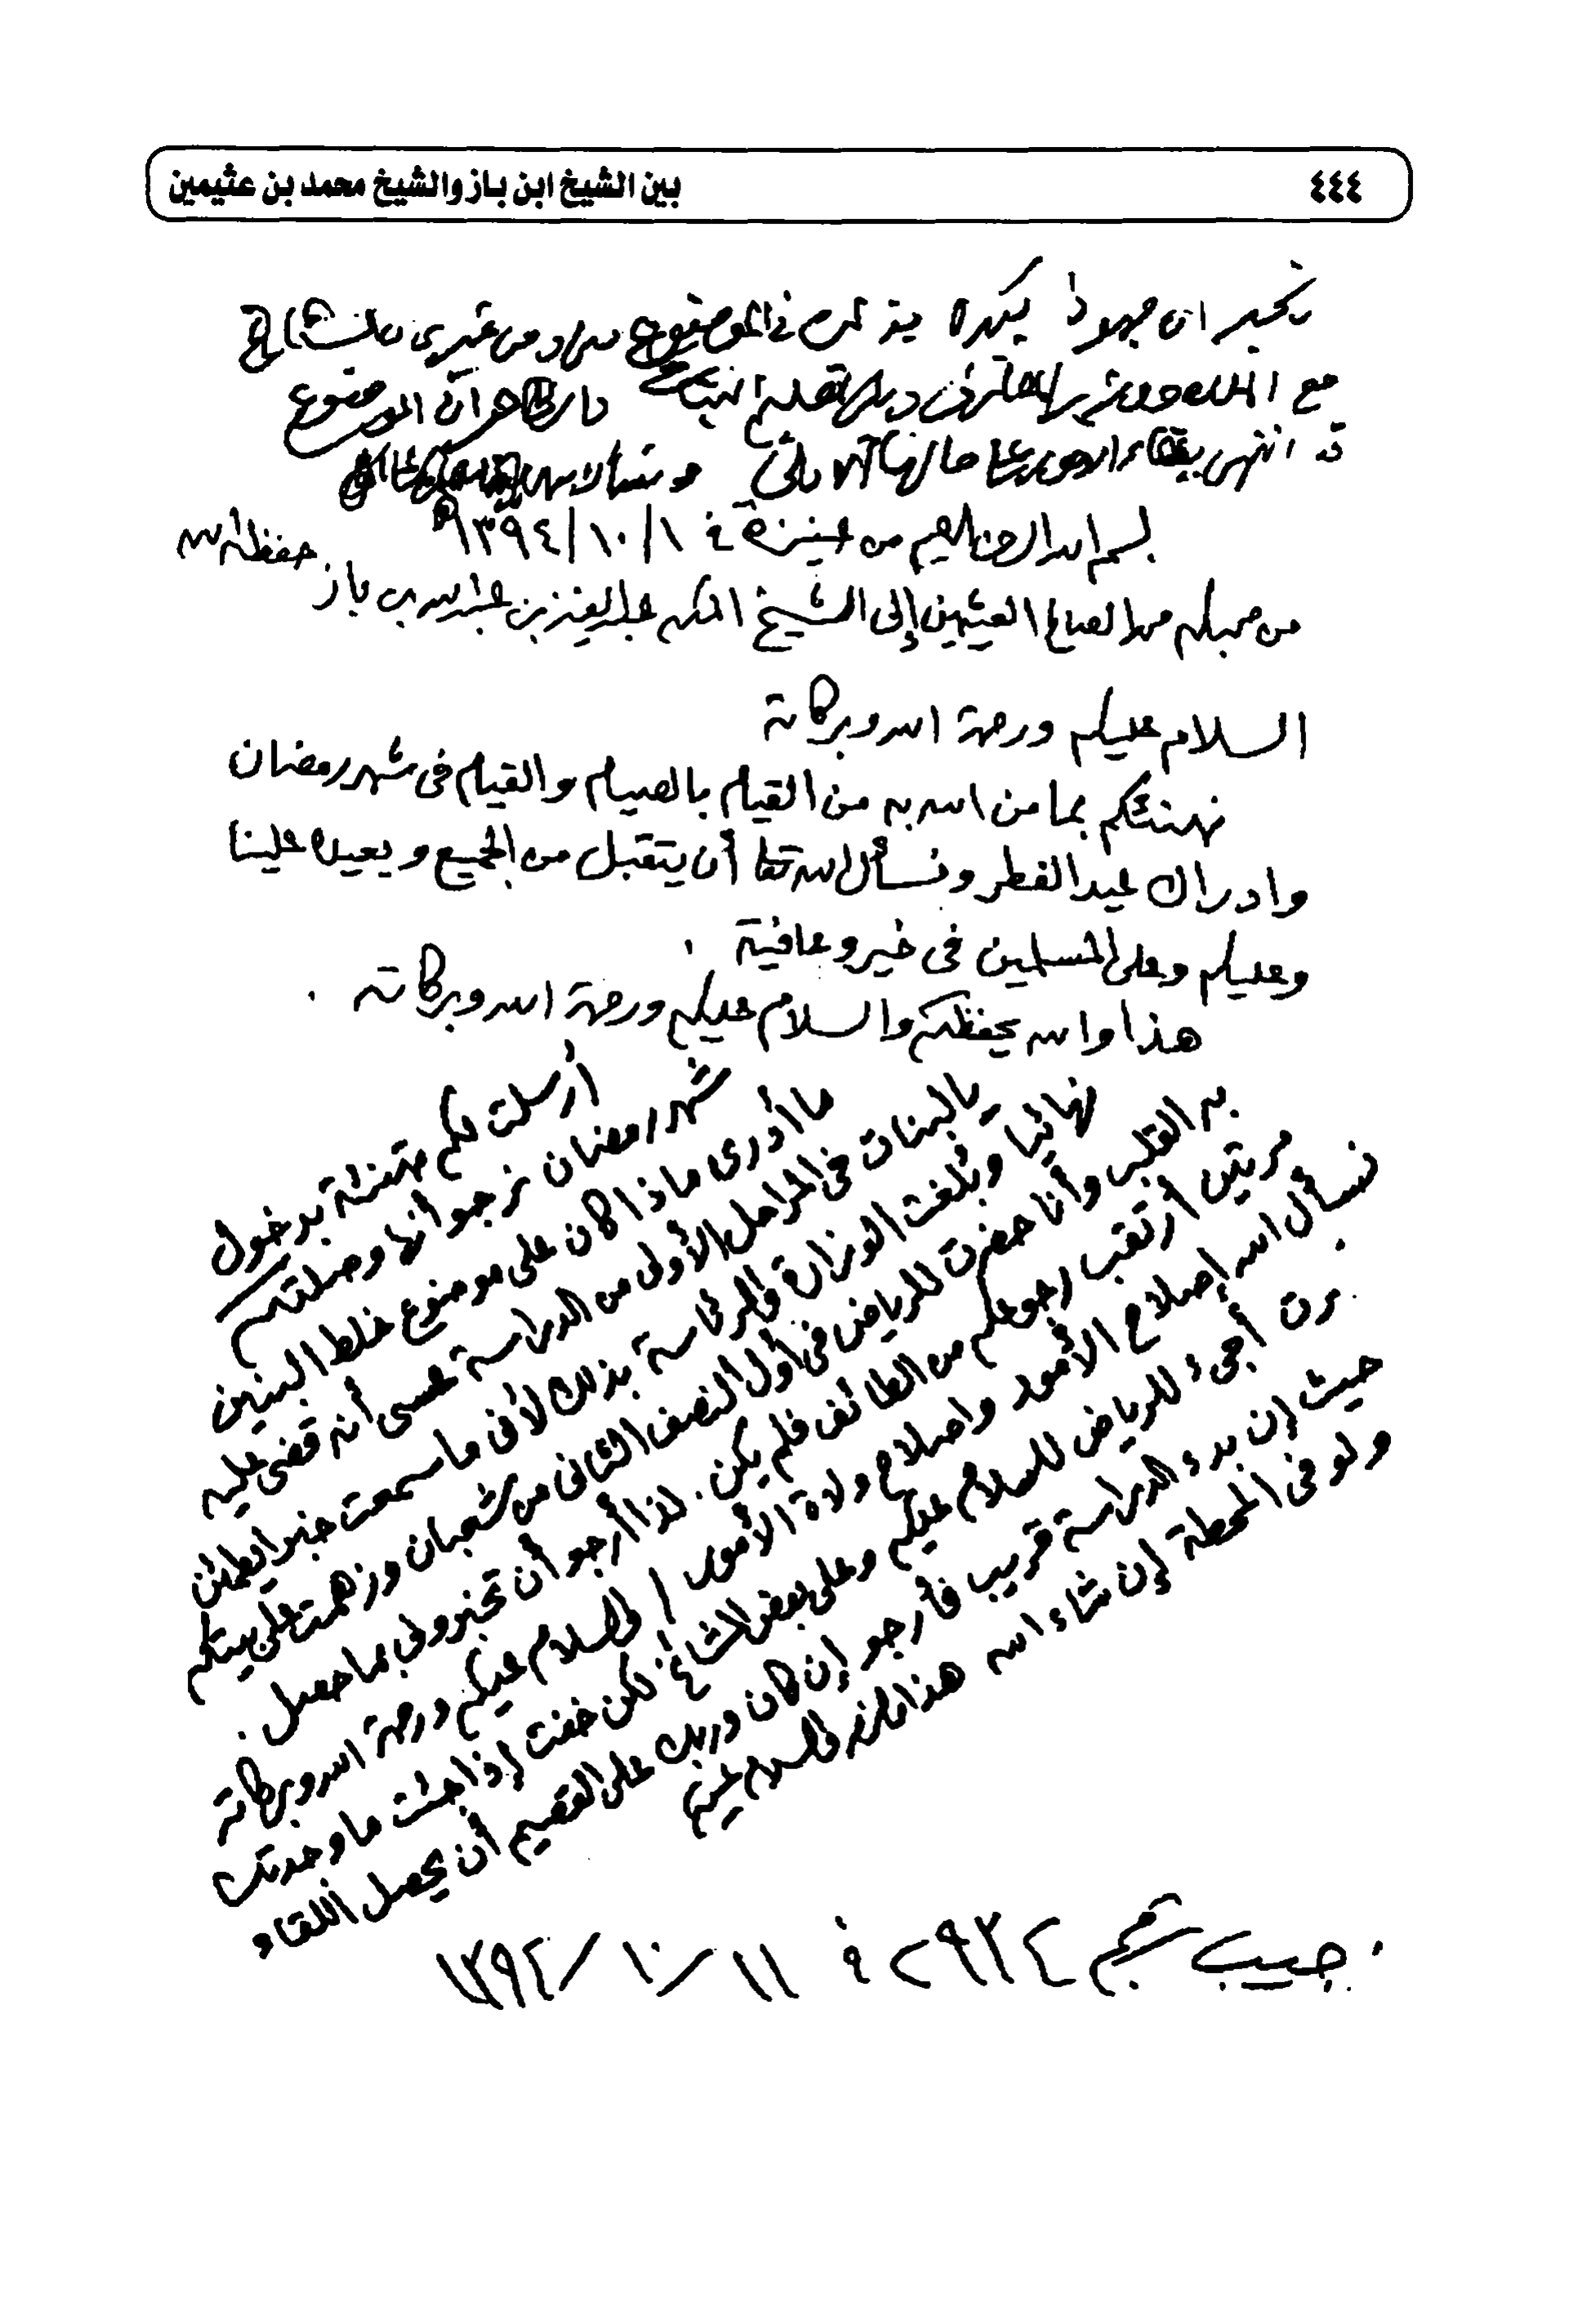 ٤٤٤
بين الشيخ ابن باز والشيخ محمد بن عثيمين
نخبر ان جهودا كبيرة في الموضوع ومن غيري من المشايخ
مع الملك
ان الموضوع
قد انتهى ببقاء الامور على حالها الاولى ونسأل الله
بسم الله الرحمن الرحيم من عنيزة في ١/١٠/١٣٩٤هـ
من محبكم محمد الصالح العثيمين إلى الشيخ المكرم عبدالعزيز بن عبدالله بن باز حفظه الله
السلام عليكم ورحمة الله وبركاته
نهنئكم بما من الله به من القيام بالصيام والقيام في شهر رمضان
وادراك عيد الفطر ونسأل الله تعالى أن يتقبل من الجميع ويعيده علينا
وعليكم وعلى المسلمين في خير وعافية .
هذا والله يحفظكم والسلام عليكم ورحمة الله وبركاته .
أرسلت لكم تهنئة بدخول
شهر رمضان نرجو أنها وصلتكم
ما أدري ماذا كان على موضوع خلط البنين
بالبنات في المراحل الأولى من الدراسة عسى أنه قضي عليه
نهائيا وبلغت الوزارة والرئاسة بذلك لأني ما سمعت خبرا يطمئن
به القلب وأنا حضرت للرياض في أول النصف الثاني من شعبان وزهمت على بيتكم
مرتين أرتقب رجوعكم من الطائف فلم يكن . لذا أرجو أن تخبروني بما حصل .
نسأل الله إصلاح الأمور وإصلاح ولاة الأمور . والسلام عليكم ورحمة الله وبركاته
. ودي أجيء للرياض للسلام عليكم وعلى بعض المشايخ لكن خفت إذا جئت ما وجدتك
حيث إن بدء الدراسة قريب فأرجو إن كان دربك على القصيم أن يحصل اللقاء
ولو في المحطة إن شاء الله هذا ما لزم والسلام عليكم
. جيب ٢٩٣٤ في ١١/١٠/١٣٩٤